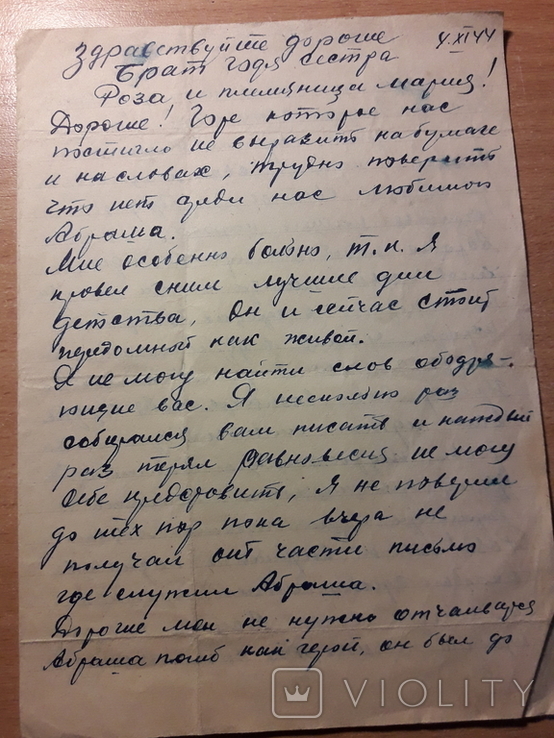 Здравствуйте дорогие 4.XI 44
Брат Годя сестра
Роза, и племяница Мария!
Дорогие! Горе которое нас
постигло не выразить на бумаге
и на словах, трудно поверить
что нет среди нас любимого
Абраша.
Мне особенно больно, т.к. я
провел с ним лучшие дни
детства, он и сейчас стоит
передомной как живой.
Я не могу найти слов ободря-
ющие вас. Я несколько раз
собирался вам писать и каждый
раз терял равновесия не могу
себе представить, я не поверил
до тех пор пока вчера не
получил от части письмо
где служил Абраша.
Дорогие мои не нужно отчаиватся
Абраша погиб как герой, он был до
VIOLITY